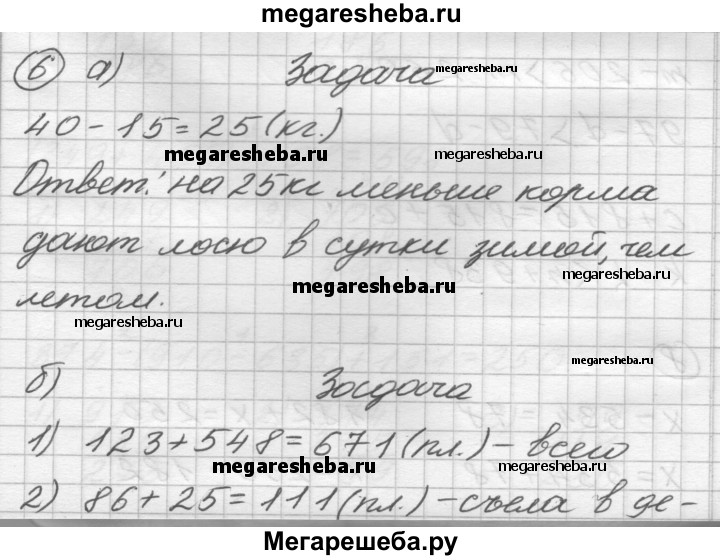 megaresheba.ru
6 а) Задача megaresheba.ru
40-15=25(кг.)
megaresheba.ru megaresheba.ru
Ответ: на 25кг меньше корма
дают лосю в сутки зимой, чем
megaresheba.ru megaresheba.ru
летом.
megaresheba.ru
megaresheba.ru
б) Задача
1) 123+548=671(пл.)-всего
megaresheba.ru megaresheba.ru
2) 86+25=111(пл.)-съела в де-
Мегарешеба.ру